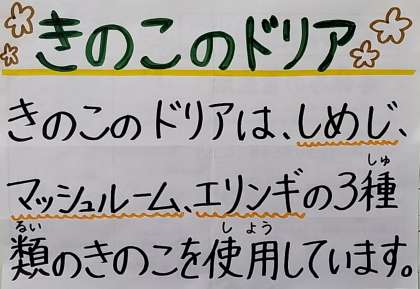 きのこのドリア
きのこのドリアは、しめじ、
マッシュルーム、エリンギの3種
しゅ
類のきのこを使用しています。
るい し よう